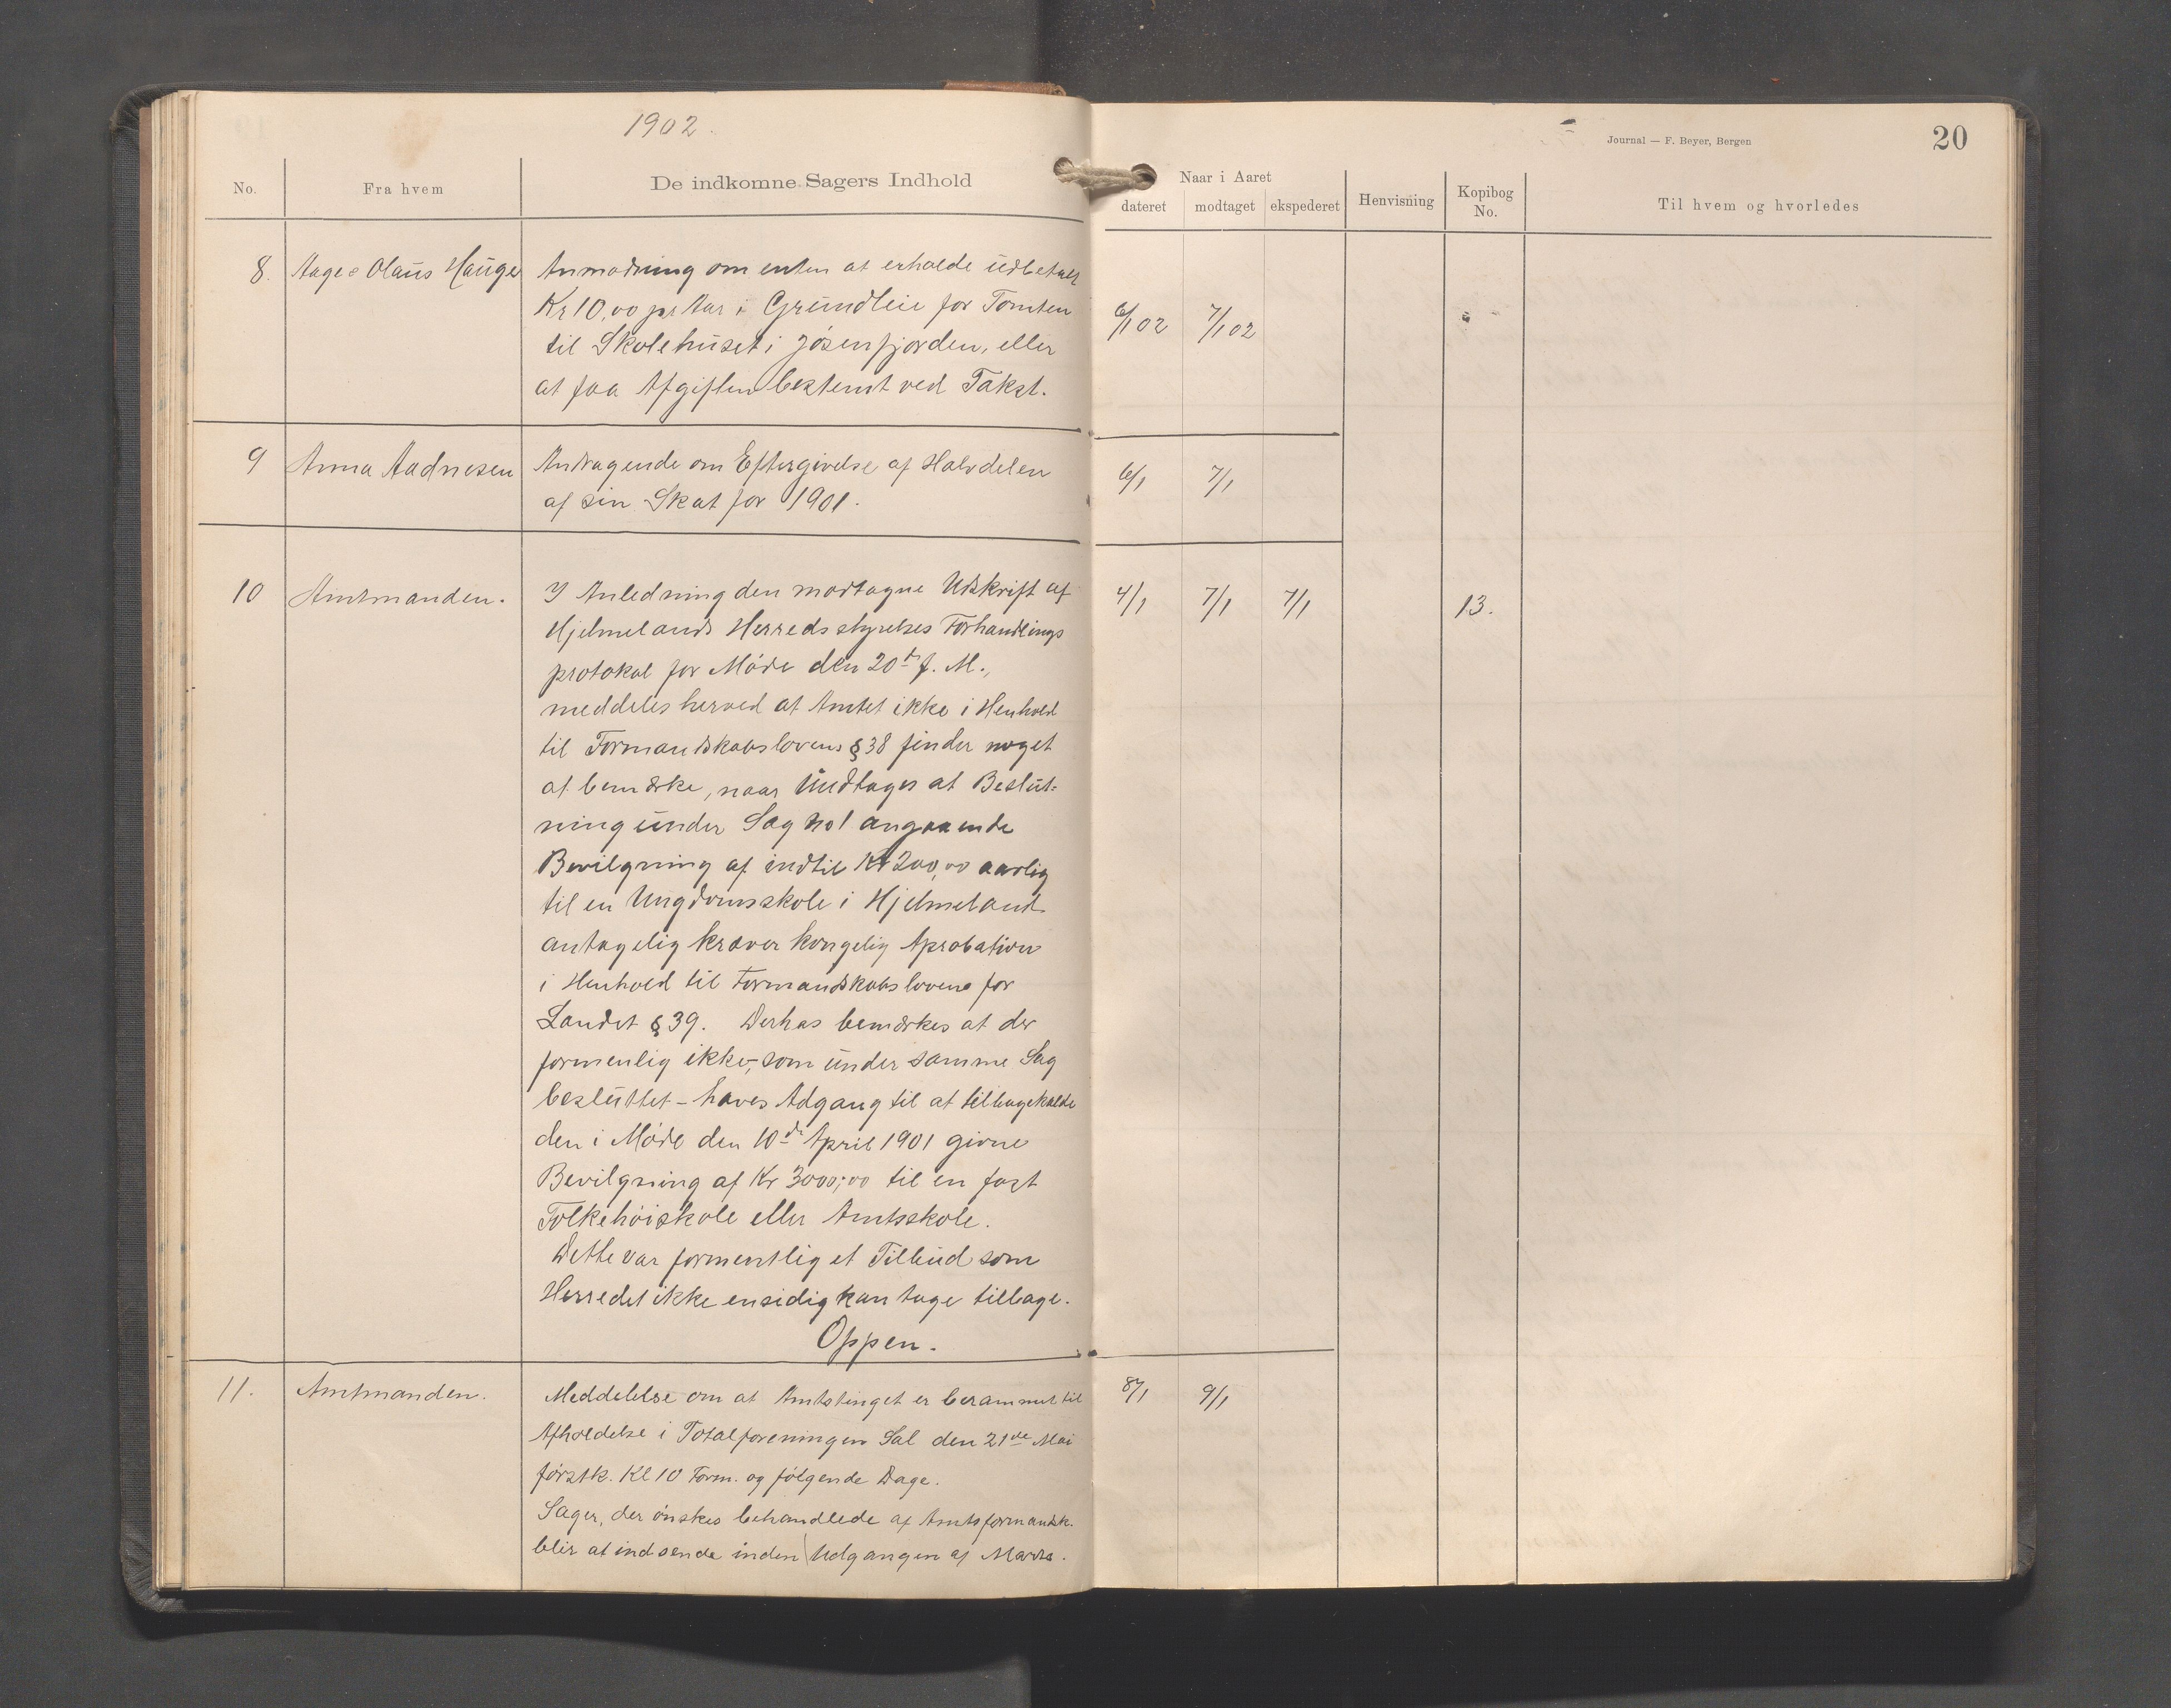 1902.
Journal — F. Beyer, Bergen
20
No.
Fra hvem
De indkomne Sagers Indhold
Naar i Aaret
dateret
modtaget
ekspederet
Henvisning
Kopibog
No.
Til hvem og hvorledes
8. Aage Olaus Hauge Anmodning om enten at erholde udbetalt
Kr 10,00 pr Aar i Grundleie for Tomten 6/1 02 7/1 02
til Skolehuset i Jøsenfjorden, eller
at faa Afgiften bestemt ved Takst.
9 Anna Aadnesen Andragende om Eftergivelse af Halvdelen 6/1 7/1
af sin Skat for 1901.
10 Amtmanden. I Anledning den modtagne Udskrift af 4/1 7/1 7/1 13.
Hjelmelands Herredsstyrelses Forhandlings
protokol for Møde den 20de f. M.,
meddeles herved at Amtet ikke i Henhold
til Formandskabslovens § 38 finder noget
at bemærke, naar undtages at Beslut-
ning under Sag no 1 angaaende
Bevilgning af indtil Kr 200,00 aarlig
til en Ungdomsskole i Hjelmeland
antagelig kræver kongelig Aprobation
i Henhold til Formandskabslovens for
Landet § 39. Derhos bemærkes at der
formenlig ikke, som under samme Sag
besluttet - haves Adgang til at tilbagekalde
den i Møde den 10de April 1901 givne
Bevilgning af Kr 3000,00 til en fast
Folkehøiskole eller Amtsskole.
Dette var formentlig et Tilbud som
Herredet ikke ensidig kan tage tilbage.
Oppen.
11. Amtmanden. Meddelelse om at Amtstinget er berammet til 8/1 9/1
Afholdelse i Totalforeningens Sal den 21de Mai
førstk. Kl 10 Form. og følgende Dage.
Sager, der ønskes behandlede af Amtsformandsk.
blir at indsende inden Udgangen af Marts.